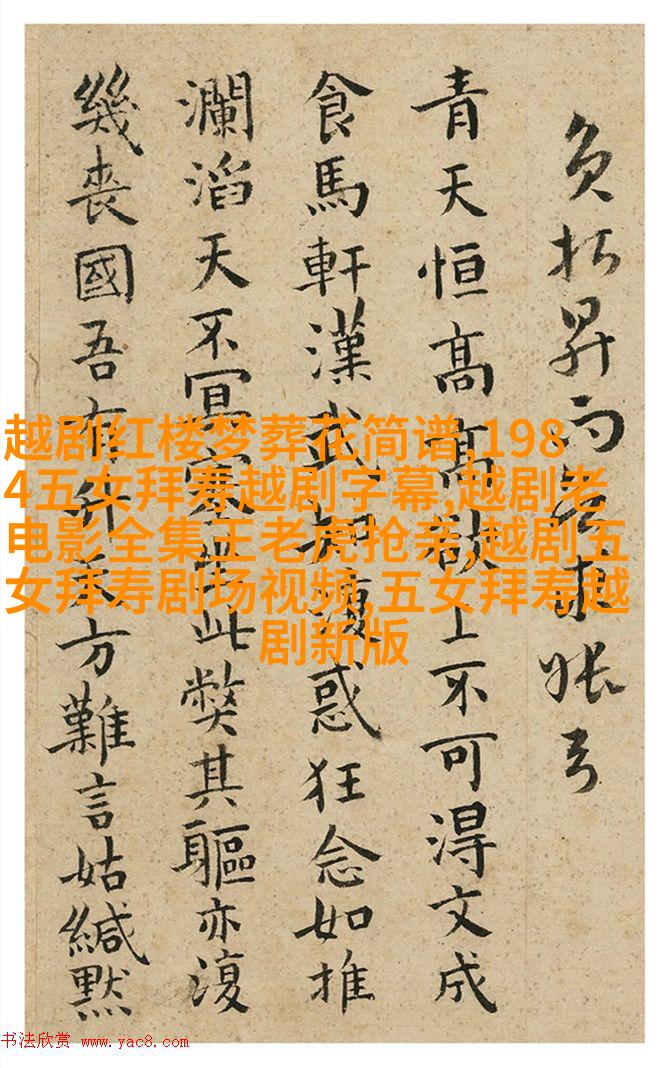 負昇而求悵
青天恒高高欲上不可得文成
食馬軒漢武胡復惑狂念如推
瀾滔天不冥塞此弊其軀亦復
幾喪國吾有升天方難言姑緘默
越剧红楼梦葬花简谱,198
4五女拜寿越剧字幕,越剧老
电影全集王老虎抢亲,越剧五
女拜寿剧场视频,五女拜寿越
剧新版
书法欣赏 www.yac8.com